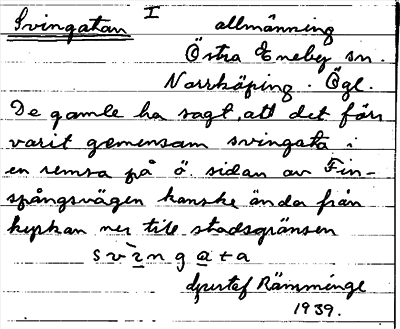 Svingatan I allmänning
Östra Eneby sn.
Norrköping. Ögl.
De gamle ha sagt, att det förr
varit gemensam svingata i
en remsa på ö. sidan av Fin-
spångsvägen kanske ända från
kyrkan ner till stadsgränsen
svìngata
Gustaf Rämminge
1939.